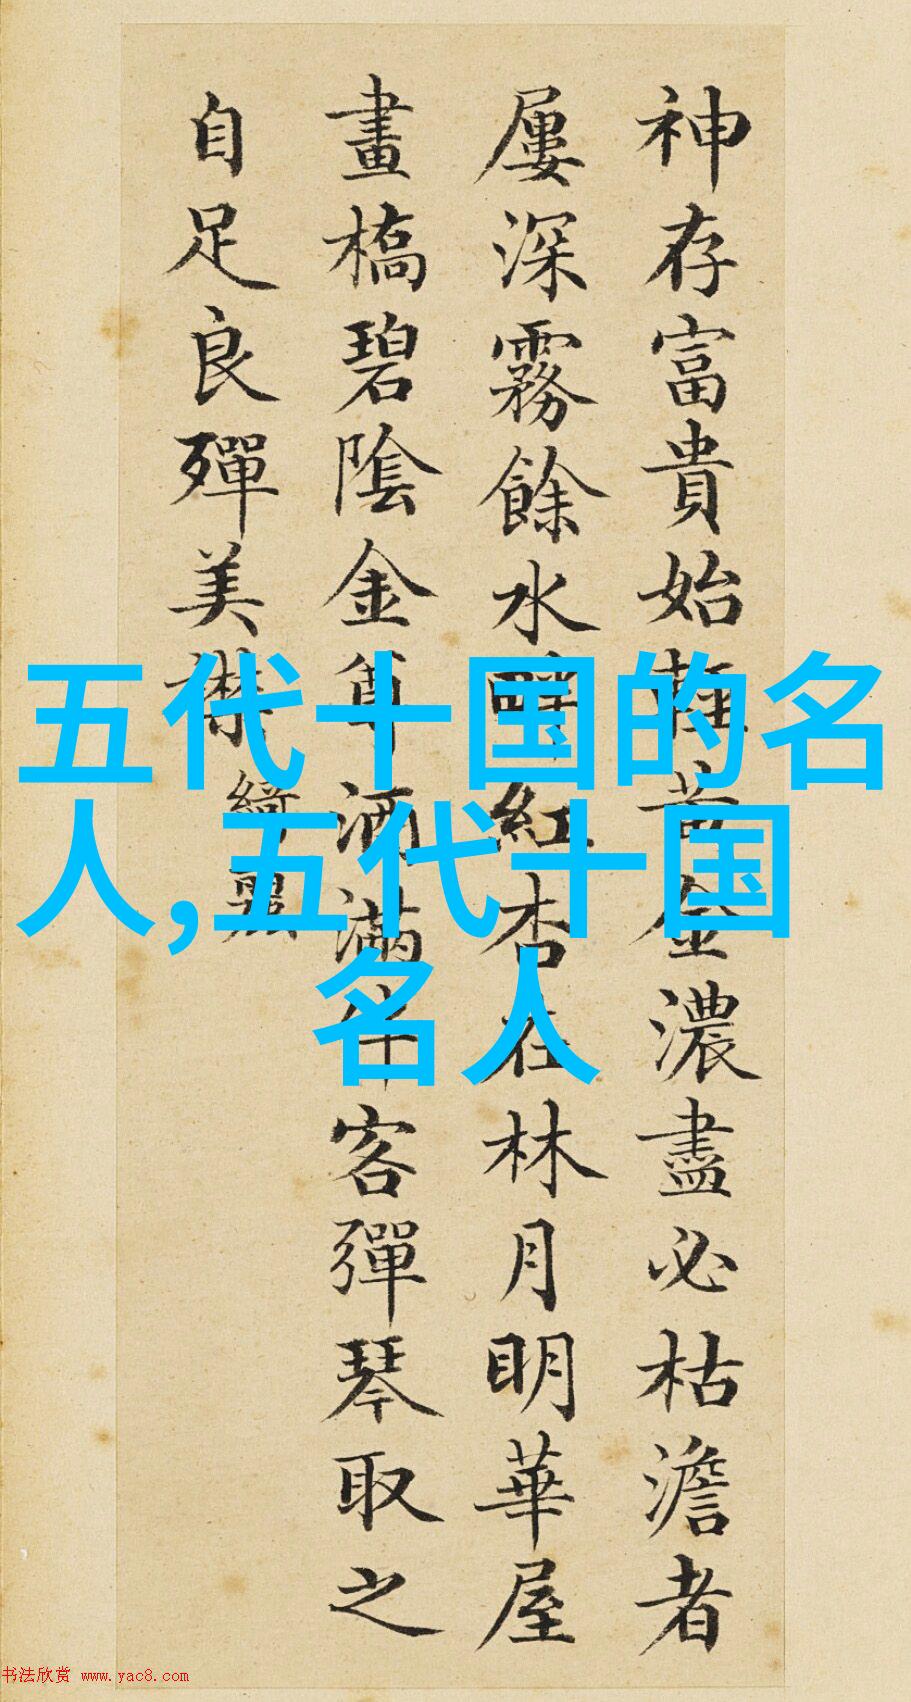 神存富貴始輕黃金濃盡必枯澹者
屢深霧餘水畔紅杏在林月明華屋
畫橋碧陰金尊酒滿伴客彈琴取之
自足良殫美襟
綺麗
五代十国的名
人,五代十国
名人
书法欣赏 www.yac8.com